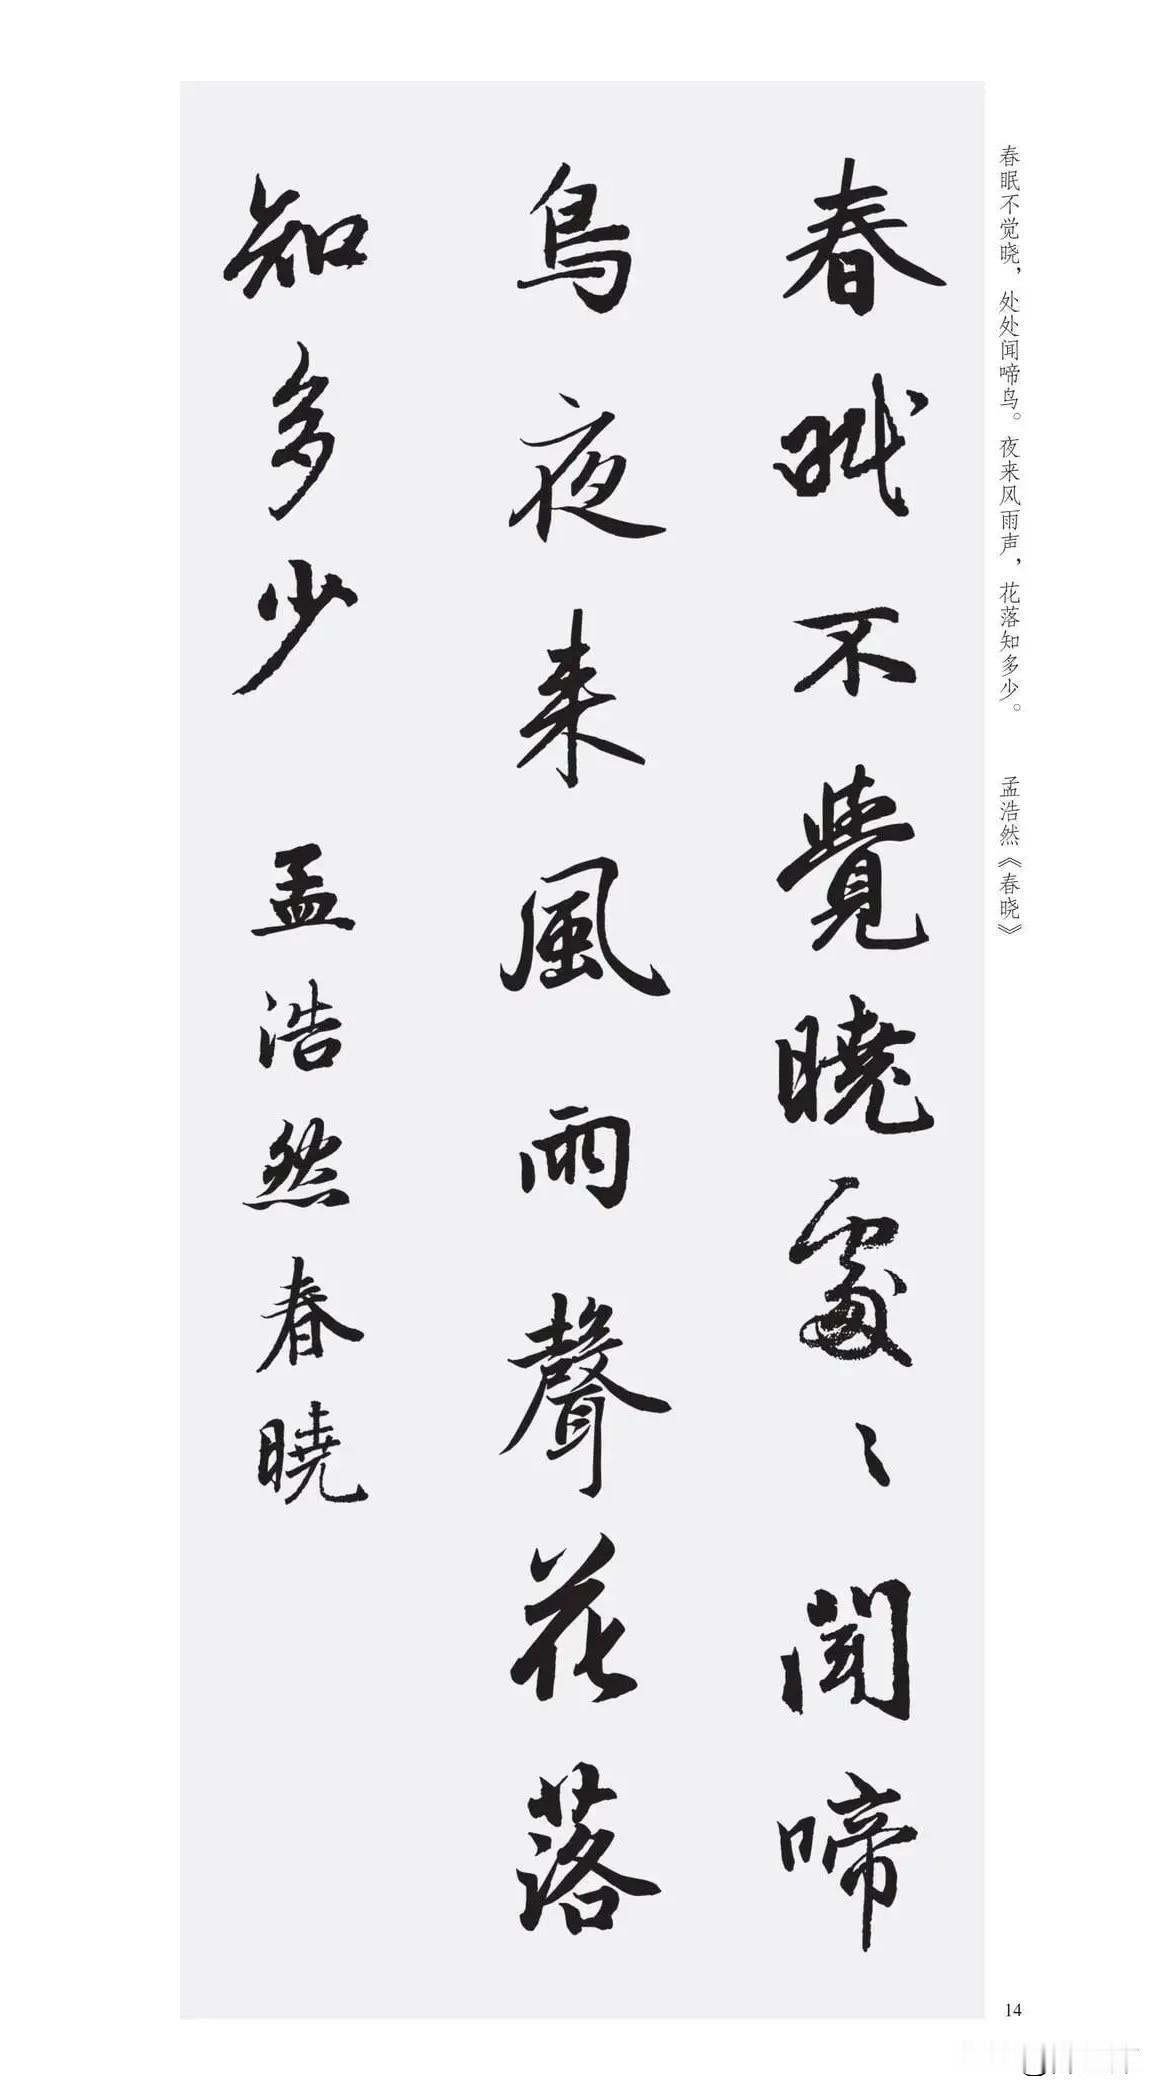 春眠不觉晓，处处闻啼鸟。夜来风雨声，花落知多少。　孟浩然《春晓》
春眠不覺曉處〻聞啼
鳥夜来風雨聲花落
知多少 孟浩然春曉
14